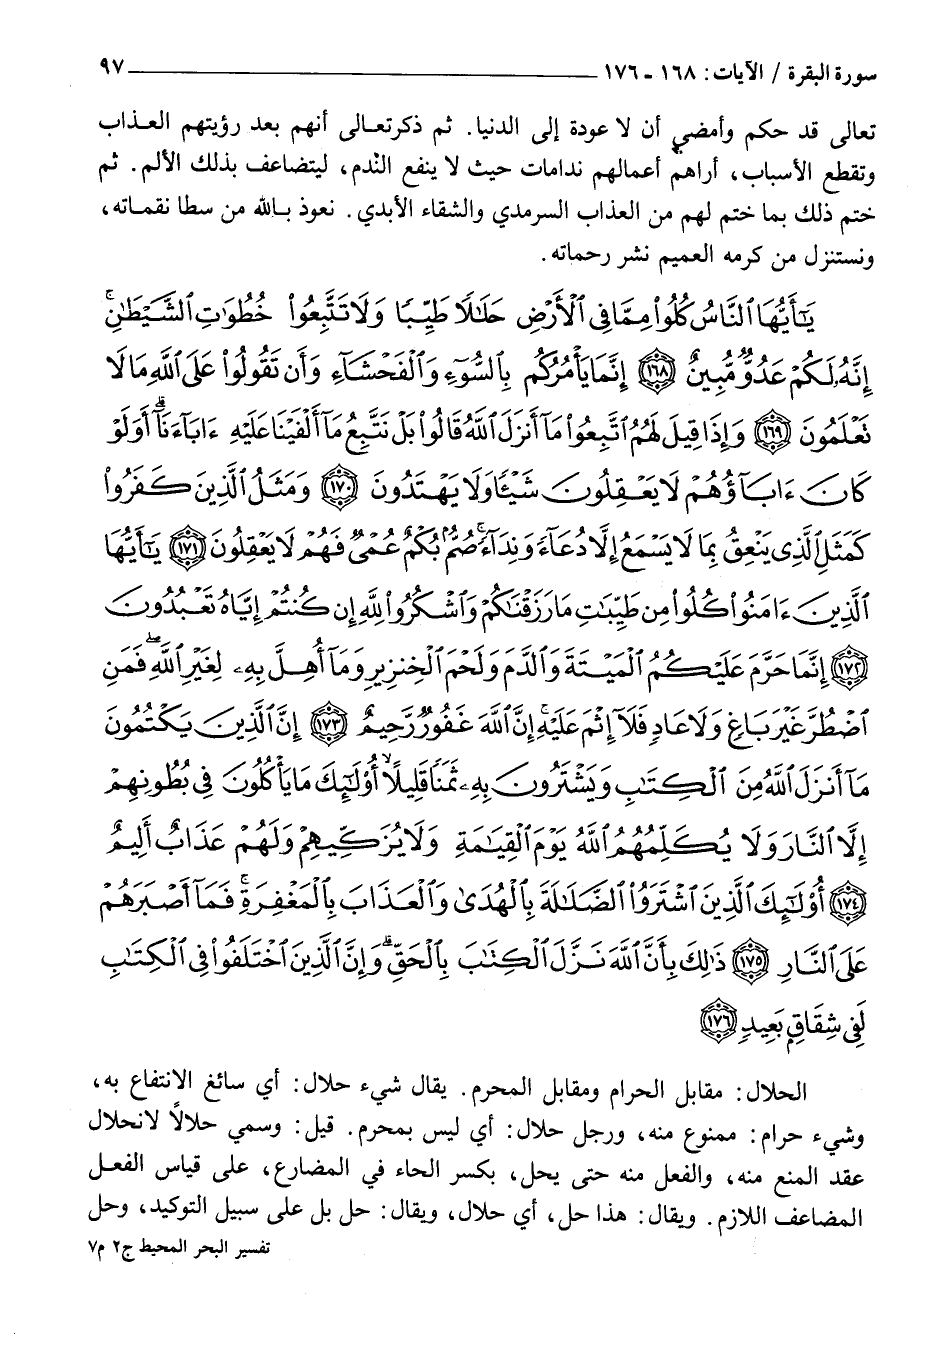 سورة البقرة / الآيات: ١٦٨ - ١٧٦ ٩٧
تعالى قد حكم وأمضي أن لا عودة إلى الدنيا. ثم ذكرتعالى أنهم بعد رؤيتهم العذاب
وتقطع الأسباب، أراهم أعمالهم ندامات حيث لا ينفع النَّدم، ليتضاعف بذلك الألم. ثم
ختم ذلك بما ختم لهم من العذاب السرمدي والشقاء الأبدي. نعوذ بالله من سطا نقماته،
ونستنزل من كرمه العميم نشر رحماته.
يَٰٓأَيُّهَا ٱلنَّاسُ كُلُوا۟ مِمَّا فِى ٱلْأَرْضِ حَلَٰلًا طَيِّبًا وَلَا تَتَّبِعُوا۟ خُطُوَٰتِ ٱلشَّيْطَٰنِ ۚ
إِنَّهُۥ لَكُمْ عَدُوٌّ مُّبِينٌ ﴿١٦٨﴾ إِنَّمَا يَأْمُرُكُم بِٱلسُّوٓءِ وَٱلْفَحْشَآءِ وَأَن تَقُولُوا۟ عَلَى ٱللَّهِ مَا لَا
تَعْلَمُونَ ﴿١٦٩﴾ وَإِذَا قِيلَ لَهُمُ ٱتَّبِعُوا۟ مَآ أَنزَلَ ٱللَّهُ قَالُوا۟ بَلْ نَتَّبِعُ مَآ أَلْفَيْنَا عَلَيْهِ ءَابَآءَنَآ ۗ أَوَلَوْ
كَانَ ءَابَآؤُهُمْ لَا يَعْقِلُونَ شَيْـًٔا وَلَا يَهْتَدُونَ ﴿١٧٠﴾ وَمَثَلُ ٱلَّذِينَ كَفَرُوا۟
كَمَثَلِ ٱلَّذِى يَنْعِقُ بِمَا لَا يَسْمَعُ إِلَّا دُعَآءً وَنِدَآءً ۚ صُمٌّۢ بُكْمٌ عُمْىٌ فَهُمْ لَا يَعْقِلُونَ ﴿١٧١﴾ يَٰٓأَيُّهَا
ٱلَّذِينَ ءَامَنُوا۟ كُلُوا۟ مِن طَيِّبَٰتِ مَا رَزَقْنَٰكُمْ وَٱشْكُرُوا۟ لِلَّهِ إِن كُنتُمْ إِيَّاهُ تَعْبُدُونَ
﴿١٧٢﴾ إِنَّمَا حَرَّمَ عَلَيْكُمُ ٱلْمَيْتَةَ وَٱلدَّمَ وَلَحْمَ ٱلْخِنزِيرِ وَمَآ أُهِلَّ بِهِۦ لِغَيْرِ ٱللَّهِ ۖ فَمَنِ
ٱضْطُرَّ غَيْرَ بَاغٍ وَلَا عَادٍ فَلَآ إِثْمَ عَلَيْهِ ۚ إِنَّ ٱللَّهَ غَفُورٌ رَّحِيمٌ ﴿١٧٣﴾ إِنَّ ٱلَّذِينَ يَكْتُمُونَ
مَآ أَنزَلَ ٱللَّهُ مِنَ ٱلْكِتَٰبِ وَيَشْتَرُونَ بِهِۦ ثَمَنًا قَلِيلًا ۙ أُو۟لَٰٓئِكَ مَا يَأْكُلُونَ فِى بُطُونِهِمْ
إِلَّا ٱلنَّارَ وَلَا يُكَلِّمُهُمُ ٱللَّهُ يَوْمَ ٱلْقِيَٰمَةِ وَلَا يُزَكِّيهِمْ وَلَهُمْ عَذَابٌ أَلِيمٌ
﴿١٧٤﴾ أُو۟لَٰٓئِكَ ٱلَّذِينَ ٱشْتَرَوُا۟ ٱلضَّلَٰلَةَ بِٱلْهُدَىٰ وَٱلْعَذَابَ بِٱلْمَغْفِرَةِ ۚ فَمَآ أَصْبَرَهُمْ
عَلَى ٱلنَّارِ ﴿١٧٥﴾ ذَٰلِكَ بِأَنَّ ٱللَّهَ نَزَّلَ ٱلْكِتَٰبَ بِٱلْحَقِّ ۗ وَإِنَّ ٱلَّذِينَ ٱخْتَلَفُوا۟ فِى ٱلْكِتَٰبِ
لَفِى شِقَاقٍۭ بَعِيدٍ ﴿١٧٦﴾
الحلال: مقابل الحرام ومقابل المحرم. يقال شيء حلال: أي سائغ الانتفاع به،
وشيء حرام: ممنوع منه، ورجل حلال: أي ليس بمحرم. قيل: وسمي حلالاً لانحلال
عقد المنع منه، والفعل منه حتى يحل، بكسر الحاء في المضارع، على قياس الفعل
المضاعف اللازم. ويقال: هذا حل، أي حلال، ويقال: حل بل على سبيل التوكيد، وحل
تفسير البحر المحيط ج٢ م٧